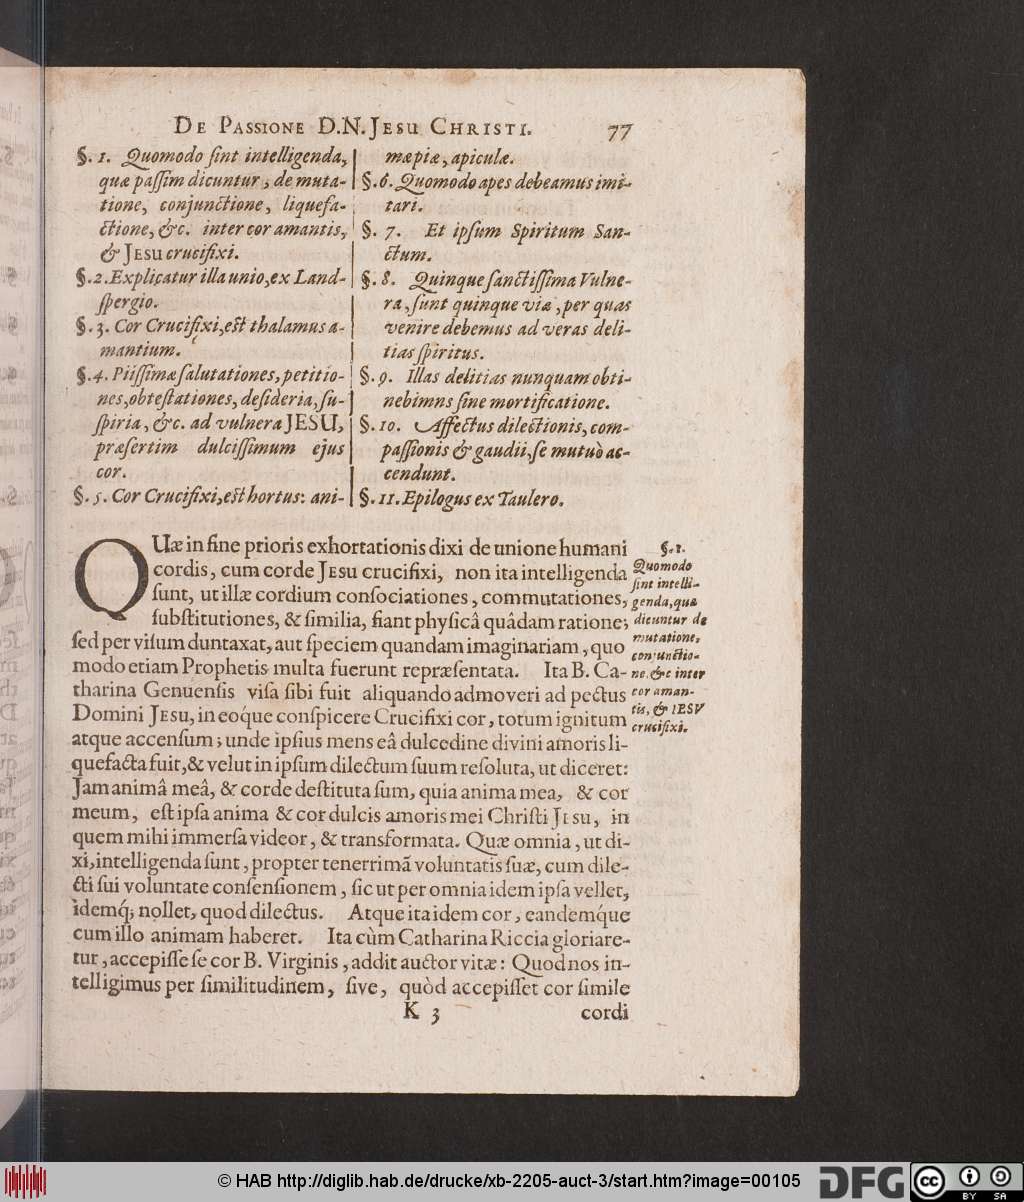 DE PASSIONE D.N. JESU CHRISTI. 77
§. 1. Quomodo ſint intelligenda,
quæ paſſim dicuntur, de muta-
tione, conjunctione, liquefa-
ctione, &c. inter cor amantis,
& JESU crucifixi.
§.2. Explicatur illa unio, ex Land-
ſpergio.
§. 3. Cor Crucifixi, eſt thalamus a-
mantium.
§.4. Piiſſimæ ſalutationes, petitio-
nes, obteſtationes, deſideria, ſu-
ſpiria, &c. ad vulnera JESU,
præſertim dulciſſimum ejus
cor.
§. 5. Cor Crucifixi, eſt hortus: ani-
mæ piæ, apiculæ.
§.6. Quomodo apes debeamus imi-
tari.
§. 7. Et ipſum Spiritum San-
ctum.
§. 8. Quinque ſanctiſſima Vulne-
ra, ſunt quinque viæ, per quas
venire debemus ad veras deli-
tias ſpiritus.
§. 9. Illas delitias nunquam obti-
nebimns ſine mortificatione.
§. 10. Affectus dilectionis, com-
paſſionis & gaudii, ſe mutuò ac-
cendunt.
§. 11. Epilogus ex Taulero.
QUæ in fine prioris exhortationis dixi de unione humani
cordis, cum corde JESU crucifixi, non ita intelligenda
ſunt, ut illæ cordium conſociationes, commutationes,
ſubſtitutiones, & ſimilia, fiant phyſicâ quâdam ratione;
ſed per viſum duntaxat, aut ſpeciem quandam imaginariam, quo
modo etiam Prophetis multa fuerunt repræſentata. Ita B. Ca-
tharina Genuenſis viſa ſibi fuit aliquando admoveri ad pectus
Domini JESU, in eoq́ue conſpicere Crucifixi cor, totum ignitum
atque accenſum; unde ipſius mens eâ dulcedine divini amoris li-
quefacta fuit, & velut in ipſum dilectum ſuum reſoluta, ut diceret:
Jam animâ meâ, & corde deſtituta ſum, quia anima mea, & cor
meum, eſt ipſa anima & cor dulcis amoris mei Chriſti JESU, in
quem mihi immerſa videor, & transformata. Quæ omnia, ut di-
xi, intelligenda ſunt, propter tenerrimã voluntatis ſuæ, cum dile-
cti ſui voluntate conſenſionem, ſic ut per omnia idem ipſa vellet,
idemq́; nollet, quod dilectus. Atque ita idem cor, eandemq́ue
cum illo animam haberet. Ita cùm Catharina Riccia gloriare-
tur, accepiſſe ſe cor B. Virginis, addit auctor vitæ: Quod nos in-
telligimus per ſimilitudinem, ſive, quòd accepiſſet cor ſimile
K 3 cordi
§. 1.
Quomodo
ſint intelli-
genda, quæ
dicuntur de
mutatione,
conjunctio-
ne, &c inter
cor aman-
tis, & IESV
crucifixi.
© HAB http://diglib.hab.de/drucke/xb-2205-auct-3/start.htm?image=00105
DFG
cc
BY SA